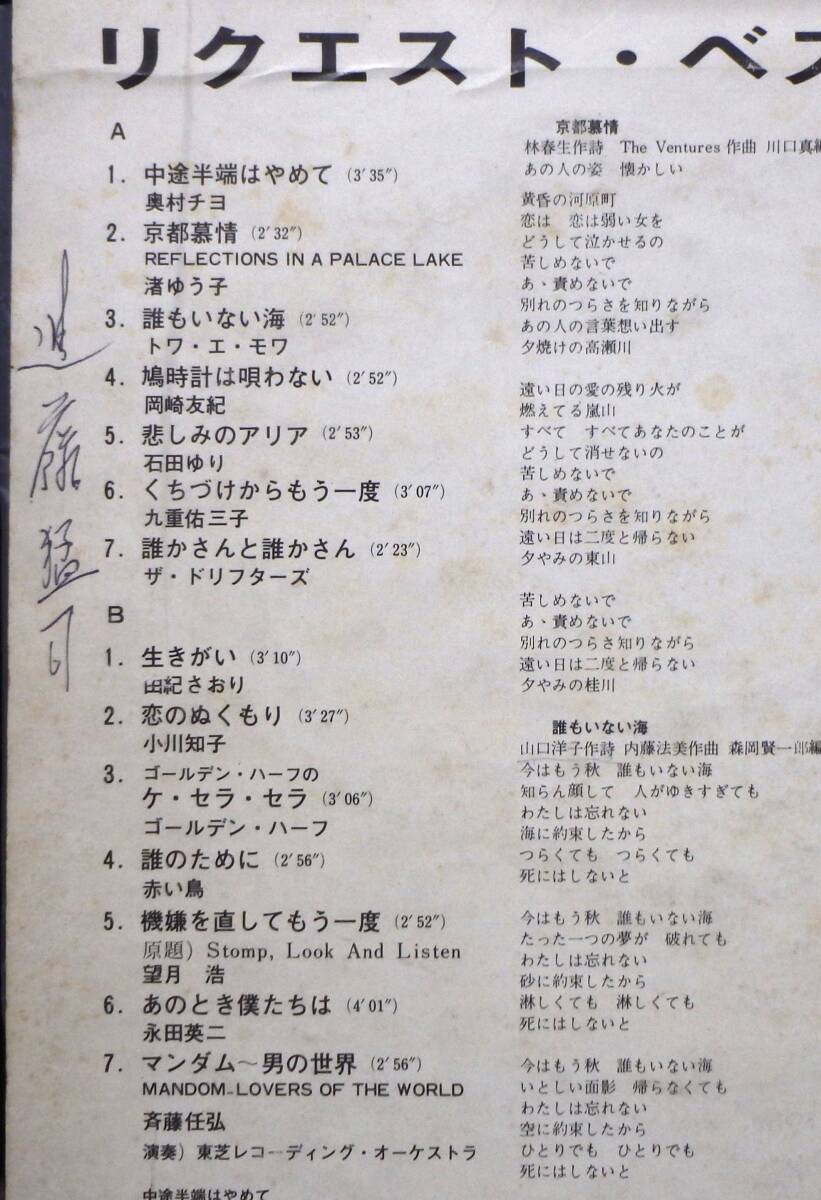 リクエスト・ベス
A
1. 中途半端はやめて (3′35″)
奥村チヨ
2. 京都慕情 (2′32″)
REFLECTIONS IN A PALACE LAKE
渚ゆう子
3. 誰もいない海 (2′52″)
トワ・エ・モワ
4. 鳩時計は唄わない (2′52″)
岡崎友紀
5. 悲しみのアリア (2′53″)
石田ゆり
6. くちづけからもう一度 (3′07″)
九重佑三子
7. 誰かさんと誰かさん (2′23″)
ザ・ドリフターズ
B
1. 生きがい (3′10″)
由紀さおり
2. 恋のぬくもり (3′27″)
小川知子
3. ゴールデン・ハーフの
ケ・セラ・セラ (3′06″)
ゴールデン・ハーフ
4. 誰のために (2′56″)
赤い鳥
5. 機嫌を直してもう一度 (2′52″)
原題) Stomp, Look And Listen
望月 浩
6. あのとき僕たちは (4′01″)
永田英二
7. マンダム〜男の世界 (2′56″)
MANDOM-LOVERS OF THE WORLD
斉藤任弘
演奏) 東芝レコーディング・オーケストラ
中途半端はやめて
京都慕情
林春生作詩 The Ventures 作曲 川口真編
あの人の姿 懐かしい
黄昏の河原町
恋は 恋は弱い女を
どうして泣かせるの
苦しめないで
あゝ責めないで
別れのつらさを知りながら
あの人の言葉想い出す
夕焼けの高瀬川
遠い日の愛の残り火が
燃えてる嵐山
すべて すべてあなたのことが
どうして消せないの
苦しめないで
あゝ責めないで
別れのつらさを知りながら
遠い日は二度と帰らない
夕やみの東山
苦しめないで
あゝ責めないで
別れのつらさ知りながら
遠い日は二度と帰らない
夕やみの桂川
誰もいない海
山口洋子作詩 内藤法美作曲 森岡賢一郎編
今はもう秋 誰もいない海
知らん顔して 人がゆきすぎても
わたしは忘れない
海に約束したから
つらくても つらくても
死にはしないと
今はもう秋 誰もいない海
たった一つの夢が 破れても
わたしは忘れない
砂に約束したから
淋しくても 淋しくても
死にはしないと
今はもう秋 誰もいない海
いとしい面影 帰らなくても
わたしは忘れない
空に約束したから
ひとりでも ひとりでも
死にはしないと